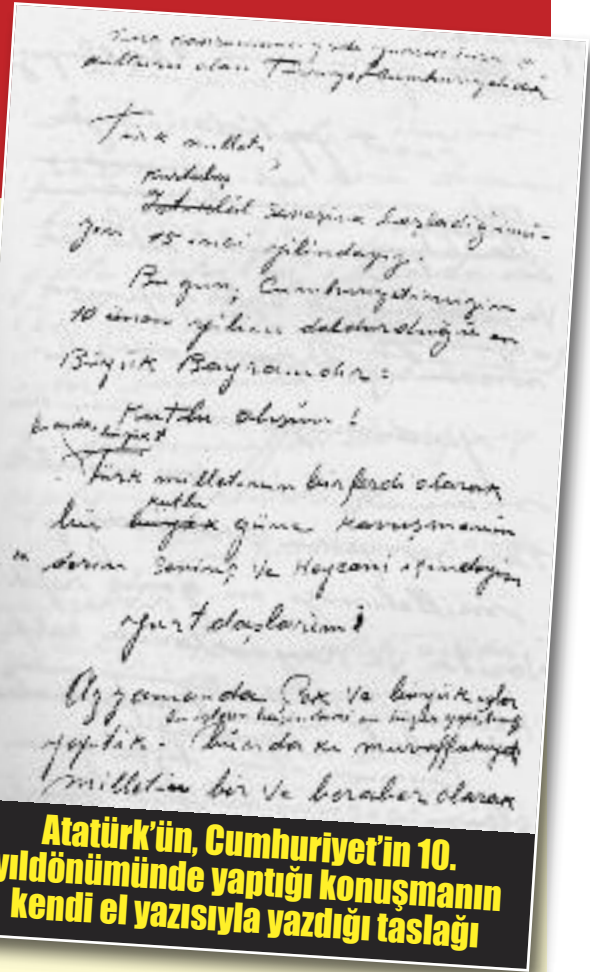 kültürü olan Türkiye Cumhuriyetidir
Türk milleti,
Kurtuluş
İstiklâl savaşına başladığımı-
zın 15 inci yılındayız.
Bu gün, Cumhuriyetimizin
10 uncu yılını doldurduğu en
Büyük Bayramdır:
Kutlu olsun!
bu anda, büyük
Türk milletinin bir ferdi olarak
kutlu
bu büyük güne kavuşmanın
en derin sevinç ve heyecanı içindeyim
yurtdaşlarım!
Az zamanda Çok ve büyük işler
yaptık. bundaki muvaffakiyeti
milletin bir ve beraber olarak
Atatürk'ün, Cumhuriyet'in 10.
yıldönümünde yaptığı konuşmanın
kendi el yazısıyla yazdığı taslağı